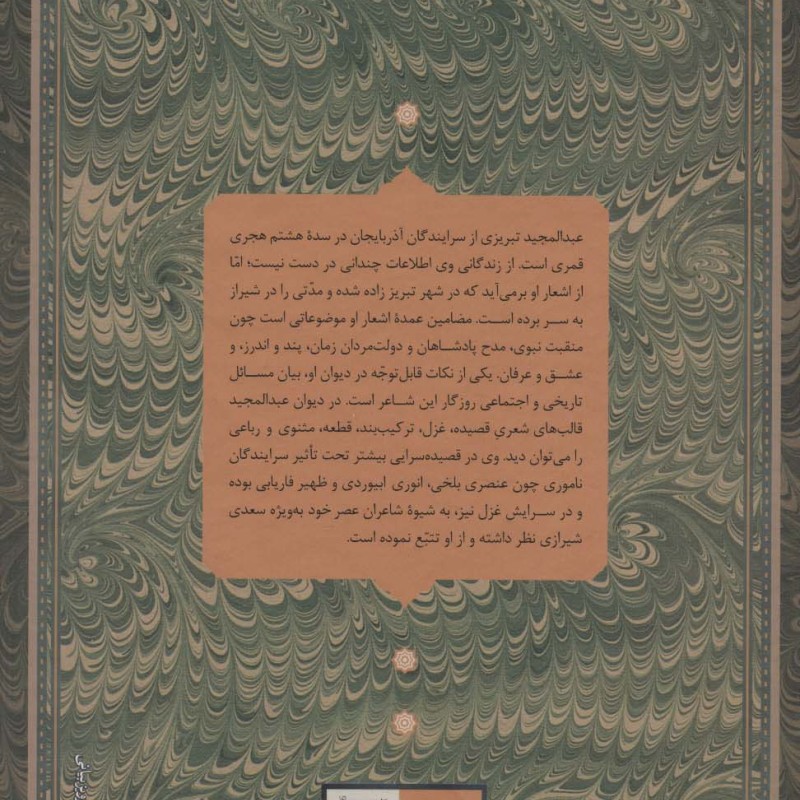 عبدالمجید تبریزی از سرایندگان آذربایجان در سدهٔ هشتم هجری
قمری است. از زندگانی وی اطلاعات چندانی در دست نیست؛ امّا
از اشعار او برمی‌آید که در شهر تبریز زاده شده و مدّتی را در شیراز
به سر برده است. مضامین عمدهٔ اشعار او موضوعاتی است چون
منقبت نبوی، مدح پادشاهان و دولت‌مردان زمان، پند و اندرز، و
عشق و عرفان. یکی از نکات قابل‌توجّه در دیوان او، بیان مسائل
تاریخی و اجتماعی روزگار این شاعر است. در دیوان عبدالمجید
قالب‌های شعریِ قصیده، غزل، ترکیب‌بند، قطعه، مثنوی و رباعی
را می‌توان دید. وی در قصیده‌سرایی بیشتر تحت تأثیر سرایندگان
ناموری چون عنصری بلخی، انوری ابیوردی و ظهیر فاریابی بوده
و در سرایش غزل نیز، به شیوهٔ شاعران عصر خود به‌ویژه سعدی
شیرازی نظر داشته و از او تتبّع نموده است.